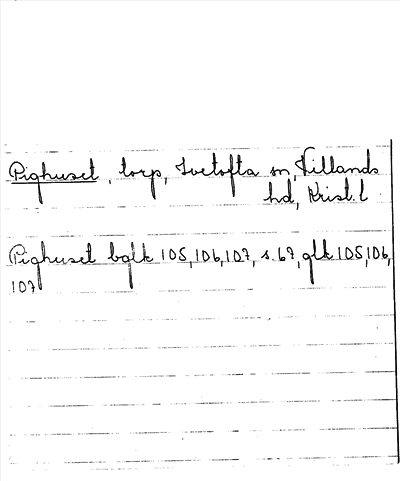 Pighuset, torp, Ivetofta sn, Villands
hd, Krist. l
Pighuset bglk 105, 106, 107, s. 67, glk 105, 106,
107